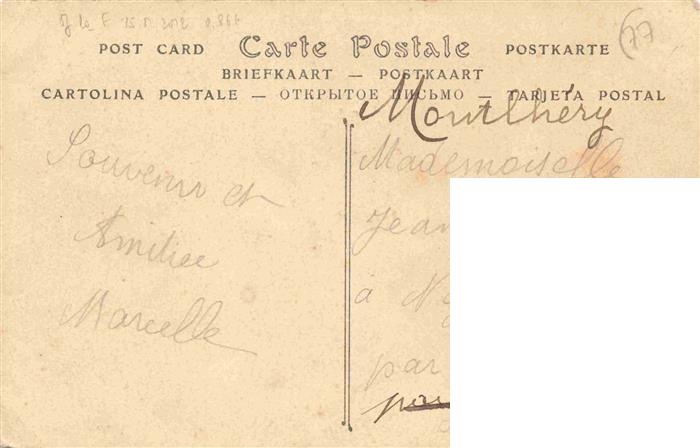 77
POST CARD Carte Postale POSTKARTE
BRIEFKAART — POSTKAART
CARTOLINA POSTALE — ОТКРЫТОЕ ПИСЬМО — TARJETA POSTAL
Montlhéry
Souvenir et
Amitiée
Marcelle
Mademoiselle
Jean
à N
par
par